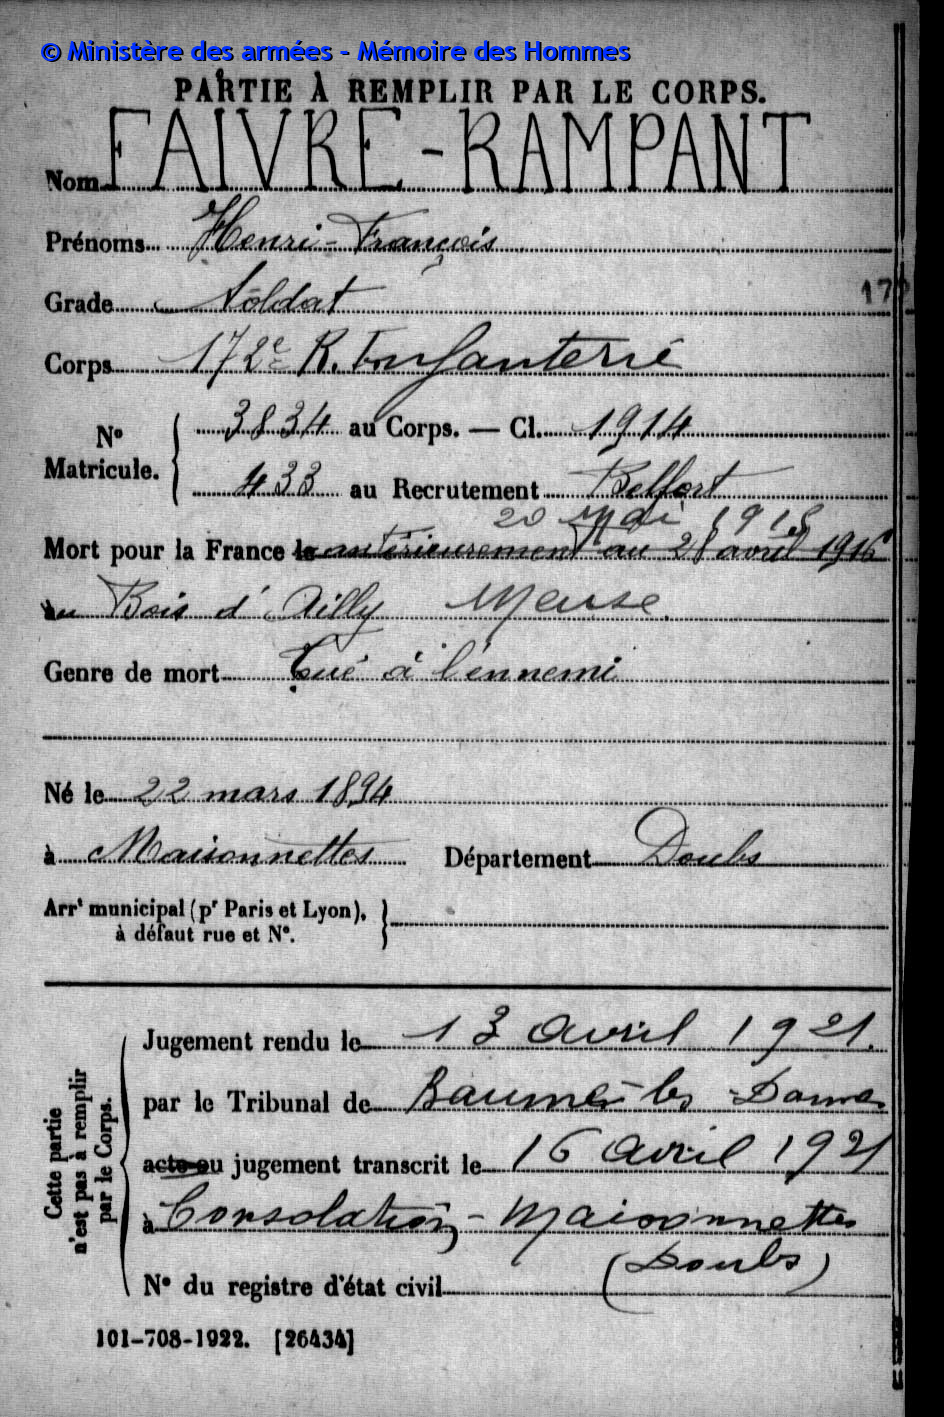 © Ministère des armées - Mémoire des Hommes
PARTIE À REMPLIR PAR LE CORPS.
Nom FAIVRE-RAMPANT
Prénoms Henri-François
Grade Soldat
17
Corps 172e R. Infanterie
N° Matricule. 3834 au Corps. — Cl. 1914
433 au Recrutement Belfort
20 Mai 1915
Mort pour la France le antérieurement au 28 avril 1916
au Bois d'Ailly Meuse
Genre de mort Tué à l'ennemi
Né le 22 mars 1894
à Maisonnettes Département Doubs
Arrt municipal (pr Paris et Lyon),
à défaut rue et N°.
Cette partie n'est pas à remplir par le Corps.
Jugement rendu le 13 avril 1921.
par le Tribunal de Baume-les-Dames
acte ou jugement transcrit le 16 avril 1921
à Consolation-Maisonnettes
(Doubs)
N° du registre d'état civil
101-708-1922. [26434]